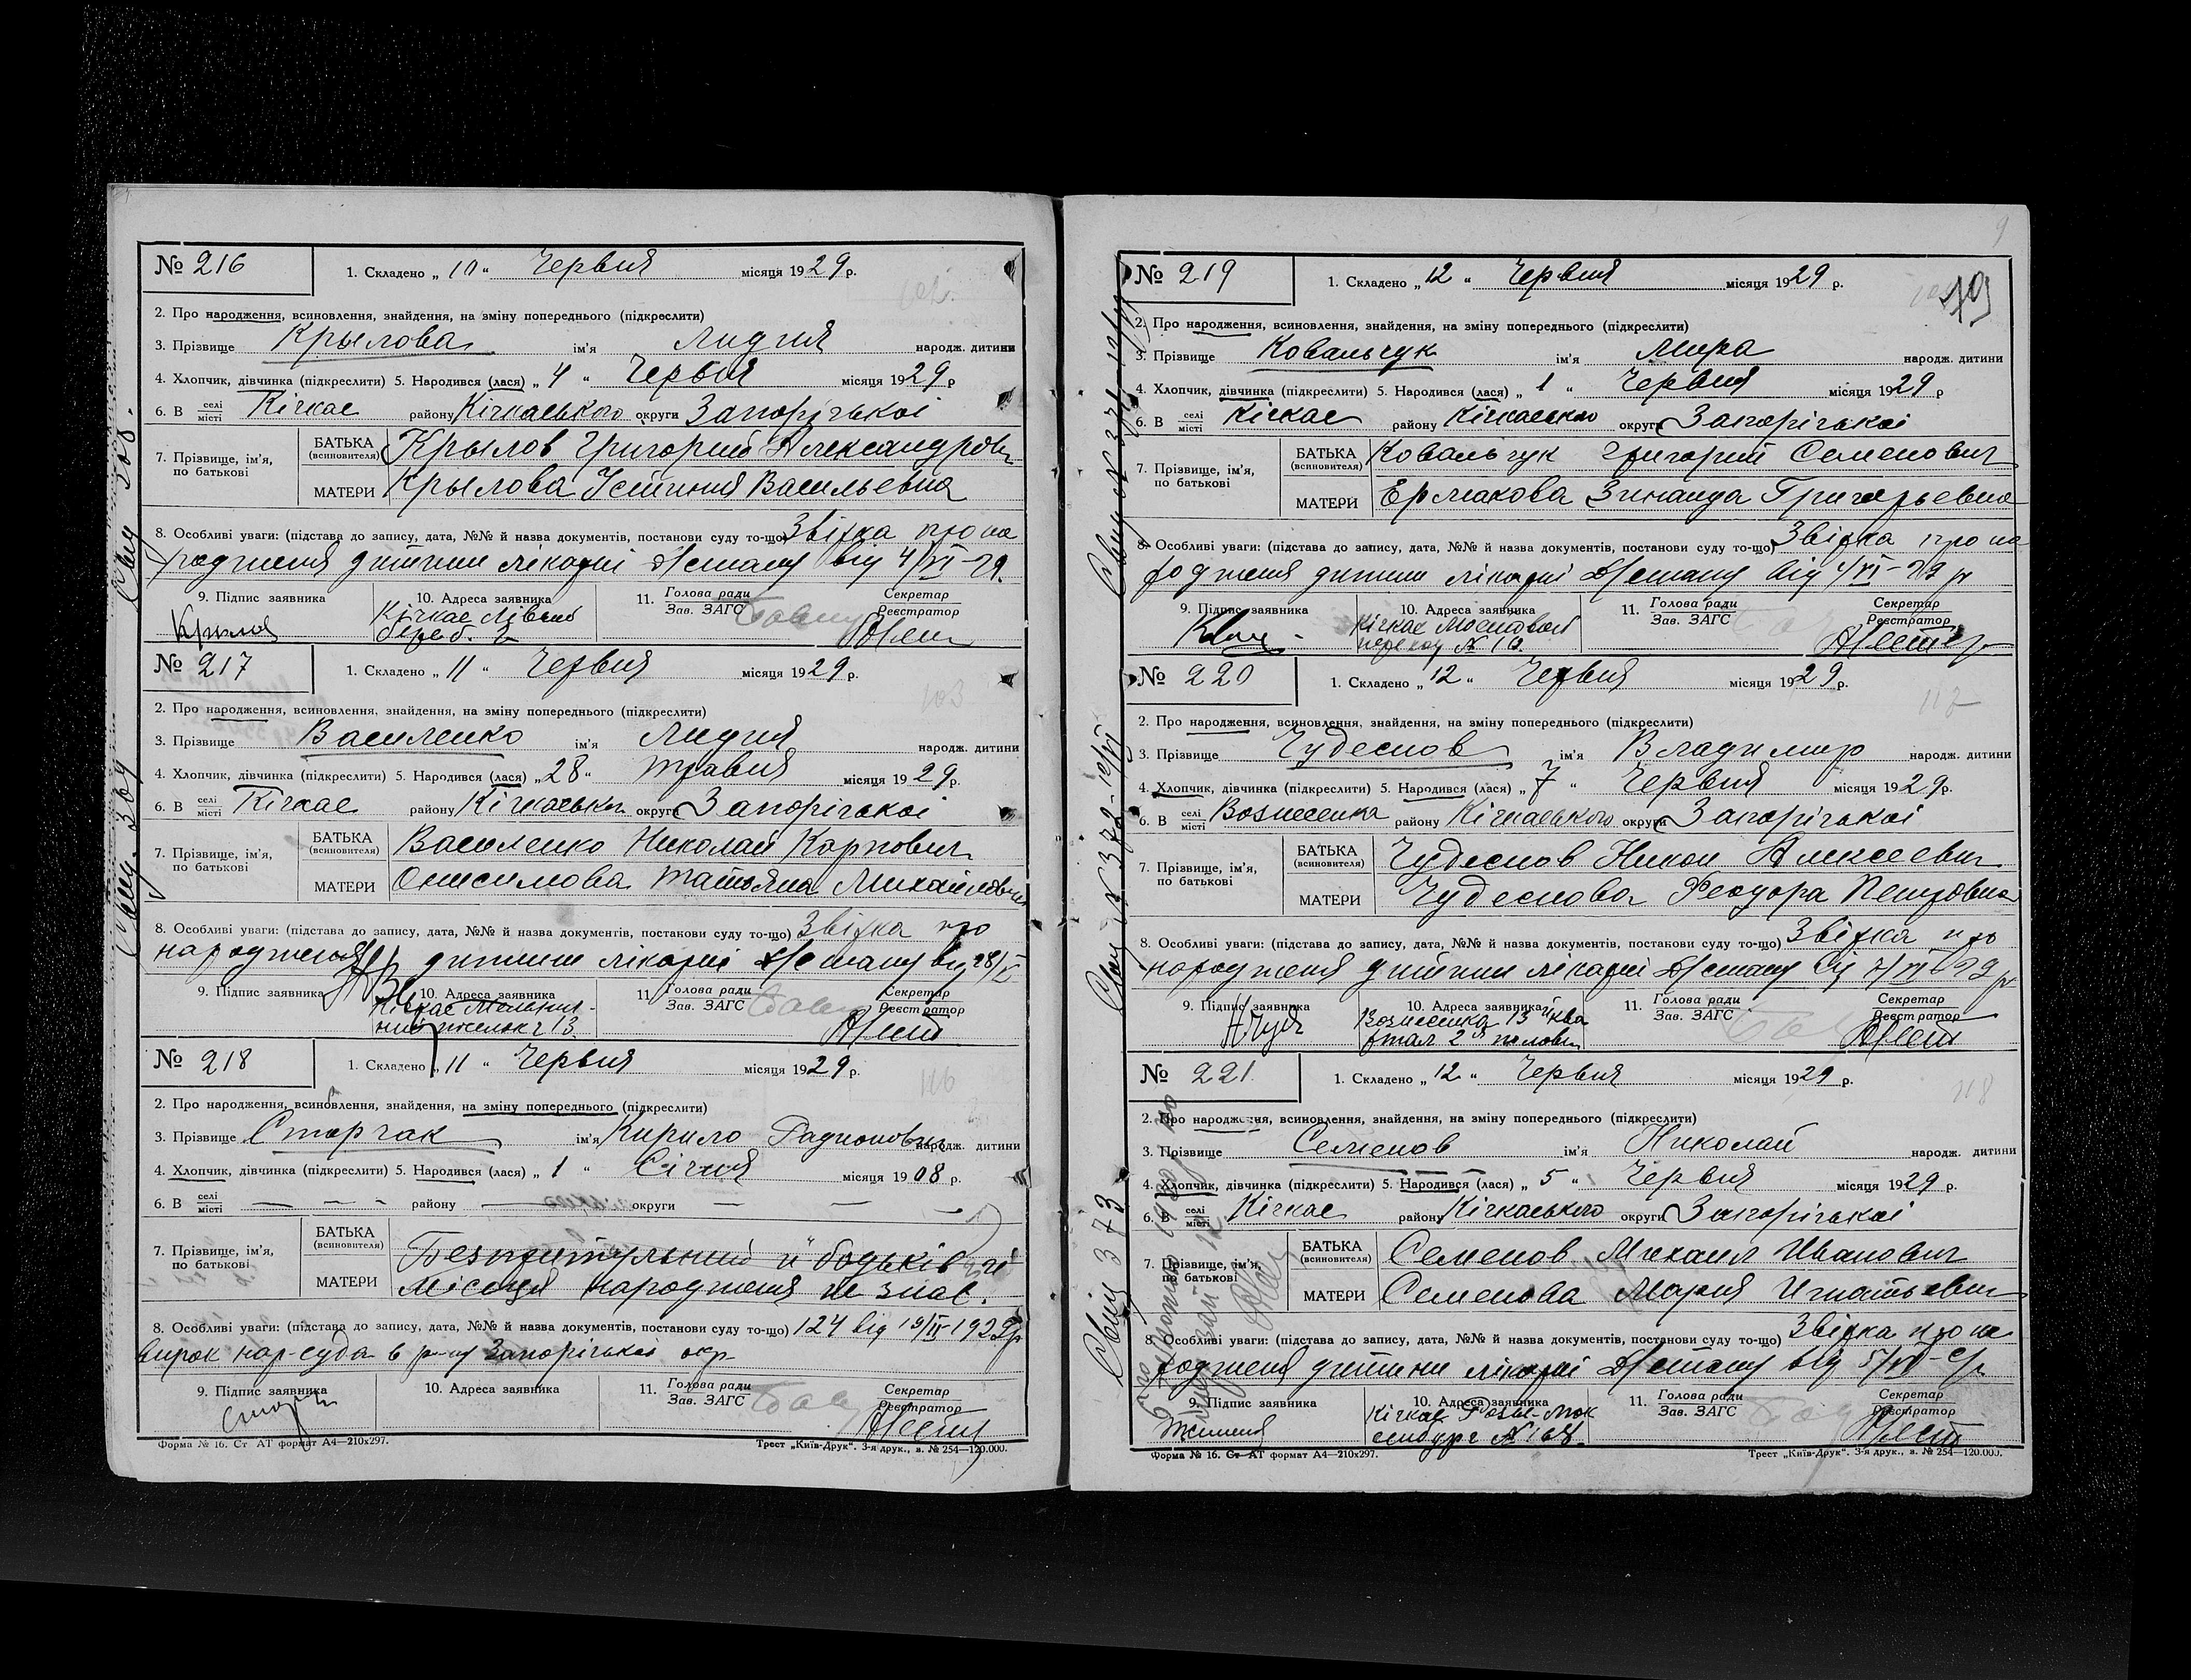 № 216
1. Складено „ 10 “ Червня місяця 1929 р.
2. Про народження, всиновлення, знайдення, на зміну попереднього (підкреслити)
3. Прізвище Крылова ім'я Лидия народж. дитини
4. Хлопчик, дівчинка (підкреслити) 5. Народився (лася) „ 4 “ Червня місяця 1929 р
6. В селі місті Кічкас району Кічкаського округи Запорізької
7. Прізвище, ім'я, по батькові
БАТЬКА (всиновителя) Крылов Григорий Александрович
МАТЕРИ Крылова Устиния Васильевна
8. Особливі уваги: (підстава до запису, дата, №№ й назва документів, постанови суду то-що) Звідка про на
родженя дитини лікарні від 4/VI-29.
9. Підпис заявника 10. Адреса заявника 11. Голова ради Зав. ЗАГС Секретар Реєстратор
Крылов Кічкас Лівый
берег.
№ 217
1. Складено „ 11 “ Червня місяця 1929 р.
2. Про народження, всиновлення, знайдення, на зміну попереднього (підкреслити)
3. Прізвище Василенко ім'я Лидия народж. дитини
4. Хлопчик, дівчинка (підкреслити) 5. Народився (лася) „ 28 “ травня місяця 1929 р.
6. В селі місті Кічкас району Кічкаськ. округи Запорізької
7. Прізвище, ім'я, по батькові
БАТЬКА (всиновителя) Василенко Николай Карпович
МАТЕРИ Онисимова Татьяна Михайловна
8. Особливі уваги: (підстава до запису, дата, №№ й назва документів, постанови суду то-що) Звідка про
народженя дитини лікарні від 28/V
9. Підпис заявника 10. Адреса заявника 11. Голова ради Зав. ЗАГС Секретар Реєстратор
Кічкас
13.
№ 218
1. Складено „ 11 “ Червня місяця 1929 р.
2. Про народження, всиновлення, знайдення, на зміну попереднього (підкреслити)
3. Прізвище Сторчак ім'я Кирило Радионович народж. дитини
4. Хлопчик, дівчинка (підкреслити) 5. Народився (лася) „ 1 “ Січня місяця 1908 р.
6. В селі місті — — - району — округи — — —
7. Прізвище, ім'я, по батькові
БАТЬКА (всиновителя) Безпритульний й батьків й
МАТЕРИ місця народженя не знає.
8. Особливі уваги: (підстава до запису, дата, №№ й назва документів, постанови суду то-що) 124 від 1929р
вирок нар-суда 6 р-ну Запорізької окр
9. Підпис заявника 10. Адреса заявника 11. Голова ради Зав. ЗАГС Секретар Реєстратор
Форма № 16. Ст АТ формат А4—210х297. Трест „Київ-Друк“. 3-я друк., в. № 254—120.000.
Свид. 369
№ 219
1. Складено „ 12 “ Червня місяця 1929 р.
2. Про народження, всиновлення, знайдення, на зміну попереднього (підкреслити)
3. Прізвище Ковальчук ім'я Мира народж. дитини
4. Хлопчик, дівчинка (підкреслити) 5. Народився (лася) „ 1 “ Червня місяця 1929 р
6. В селі місті Кічкас району Кічкаського округи Запорізької
7. Прізвище, ім'я, по батькові
БАТЬКА (всиновителя) Ковальчук Григорий Семенович
МАТЕРИ Ермакова Зинаида Григорьевна
8. Особливі уваги: (підстава до запису, дата, №№ й назва документів, постанови суду то-що) Звідка про на
родженя дитини лікарні від 4/VI-29 р
9. Підпис заявника 10. Адреса заявника 11. Голова ради Зав. ЗАГС Секретар Реєстратор
Кічкас Мостовой
переход №
№ 220
1. Складено „ 12 “ Червня місяця 1929 р.
2. Про народження, всиновлення, знайдення, на зміну попереднього (підкреслити)
3. Прізвище Чудеснов ім'я Владимир народж. дитини
4. Хлопчик, дівчинка (підкреслити) 5. Народився (лася) „ 7 “ Червня місяця 1929 р.
6. В селі місті Вознесенка району Кічкаського округи Запорізької
7. Прізвище, ім'я, по батькові
БАТЬКА (всиновителя) Чудеснов Никон Алексеевич
МАТЕРИ Чудеснова Феодора Петровна
8. Особливі уваги: (підстава до запису, дата, №№ й назва документів, постанови суду то-що) Звідка про
народженя дитини лікарні від 7/VI 29 р
9. Підпис заявника 10. Адреса заявника 11. Голова ради Зав. ЗАГС Секретар Реєстратор
Вознесенка 13 й ква
ртал 2я половин
№ 221.
1. Складено „ 12 “ Червня місяця 1929 р.
2. Про народження, всиновлення, знайдення, на зміну попереднього (підкреслити)
3. Прізвище Семенов ім'я Николай народж. дитини
4. Хлопчик, дівчинка (підкреслити) 5. Народився (лася) „ 5 “ Червня місяця 1929 р.
6. В селі місті Кічкас району Кічкаського округи Запорізької
7. Прізвище, ім'я, по батькові
БАТЬКА (всиновителя) Семенов Михаил Иванович
МАТЕРИ Семенова Мария Игнатьевна
8. Особливі уваги: (підстава до запису, дата, №№ й назва документів, постанови суду то-що) Звідка про на
родженя дитини лікарні від 5/VI-
9. Підпис заявника 10. Адреса заявника 11. Голова ради Зав. ЗАГС Секретар Реєстратор
Кічкас
№ 168.
Форма № 16. Ст—АТ формат А4—210х297. Трест „Київ-Друк“. 3-я друк., в. № 254—120.000.
Свид 373